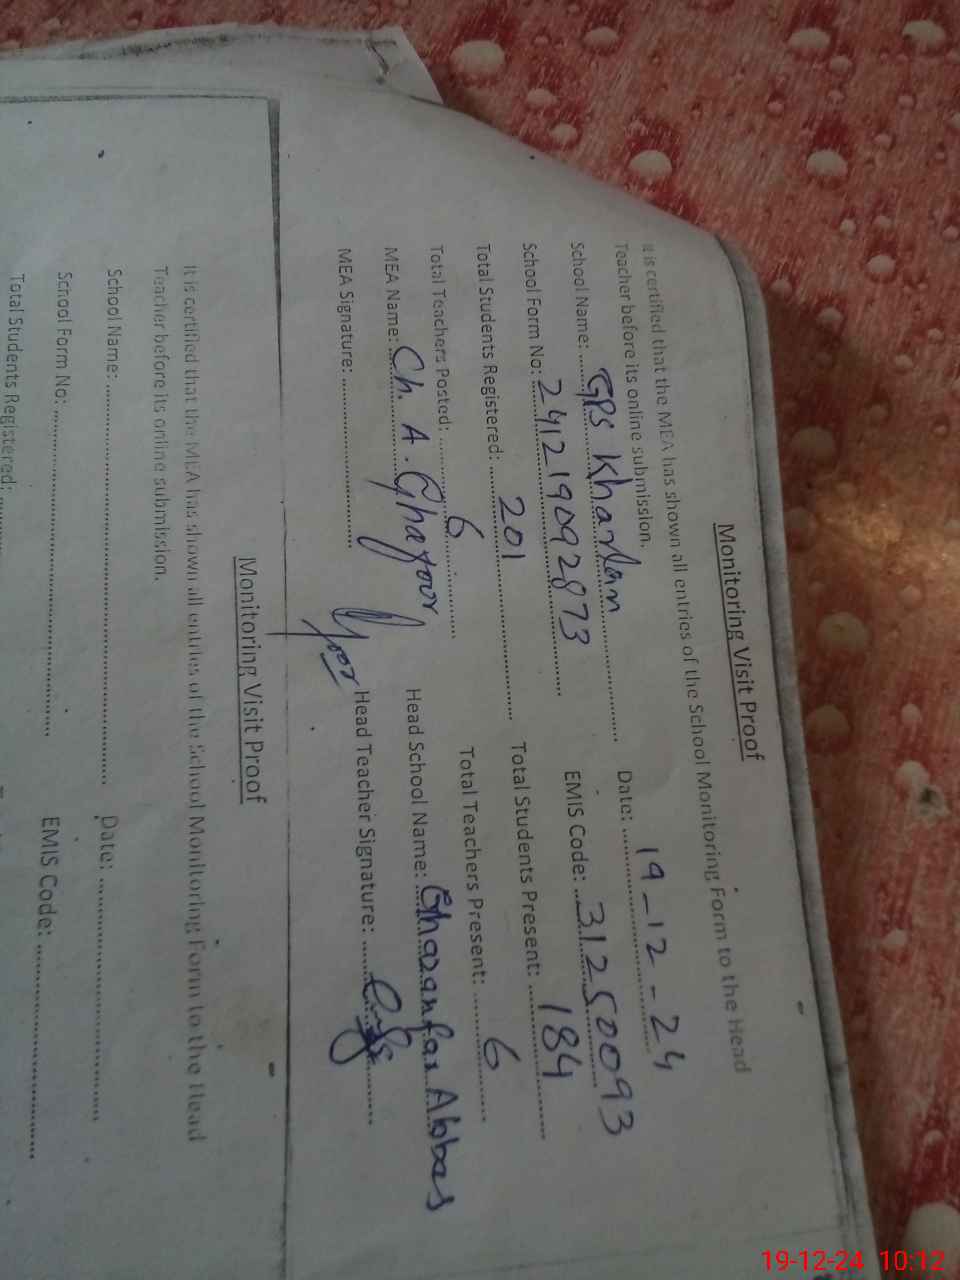 Monitoring Visit Proof
It is certified that the MEA has shown all entries of the School Monitoring Form to the Head
Teacher before its online submission.
School Name: GPS Kharlan Date: 19-12-24
School Form No: 241219092873 EMIS Code: 31250093
Total Students Registered: 201 Total Students Present: 184
Total Teachers Posted: 6 Total Teachers Present: 6
MEA Name: Ch. A. Ghafoor Head School Name: Ghazanfar Abbas
MEA Signature: Head Teacher Signature:
Monitoring Visit Proof
It is certified that the MEA has shown all entries of the School Monitoring Form to the Head
Teacher before its online submission.
School Name: Date:
School Form No: EMIS Code:
Total Students Registered:
19-12-24 10:12